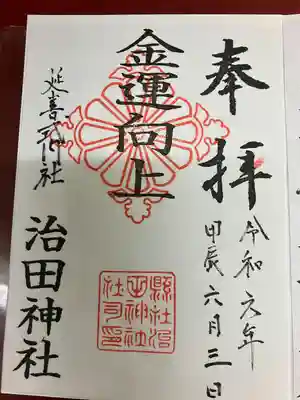 奉拝
令和六年
甲辰六月三日
金運向上
縣社治
田神社
社司印
延喜式神社
治田神社